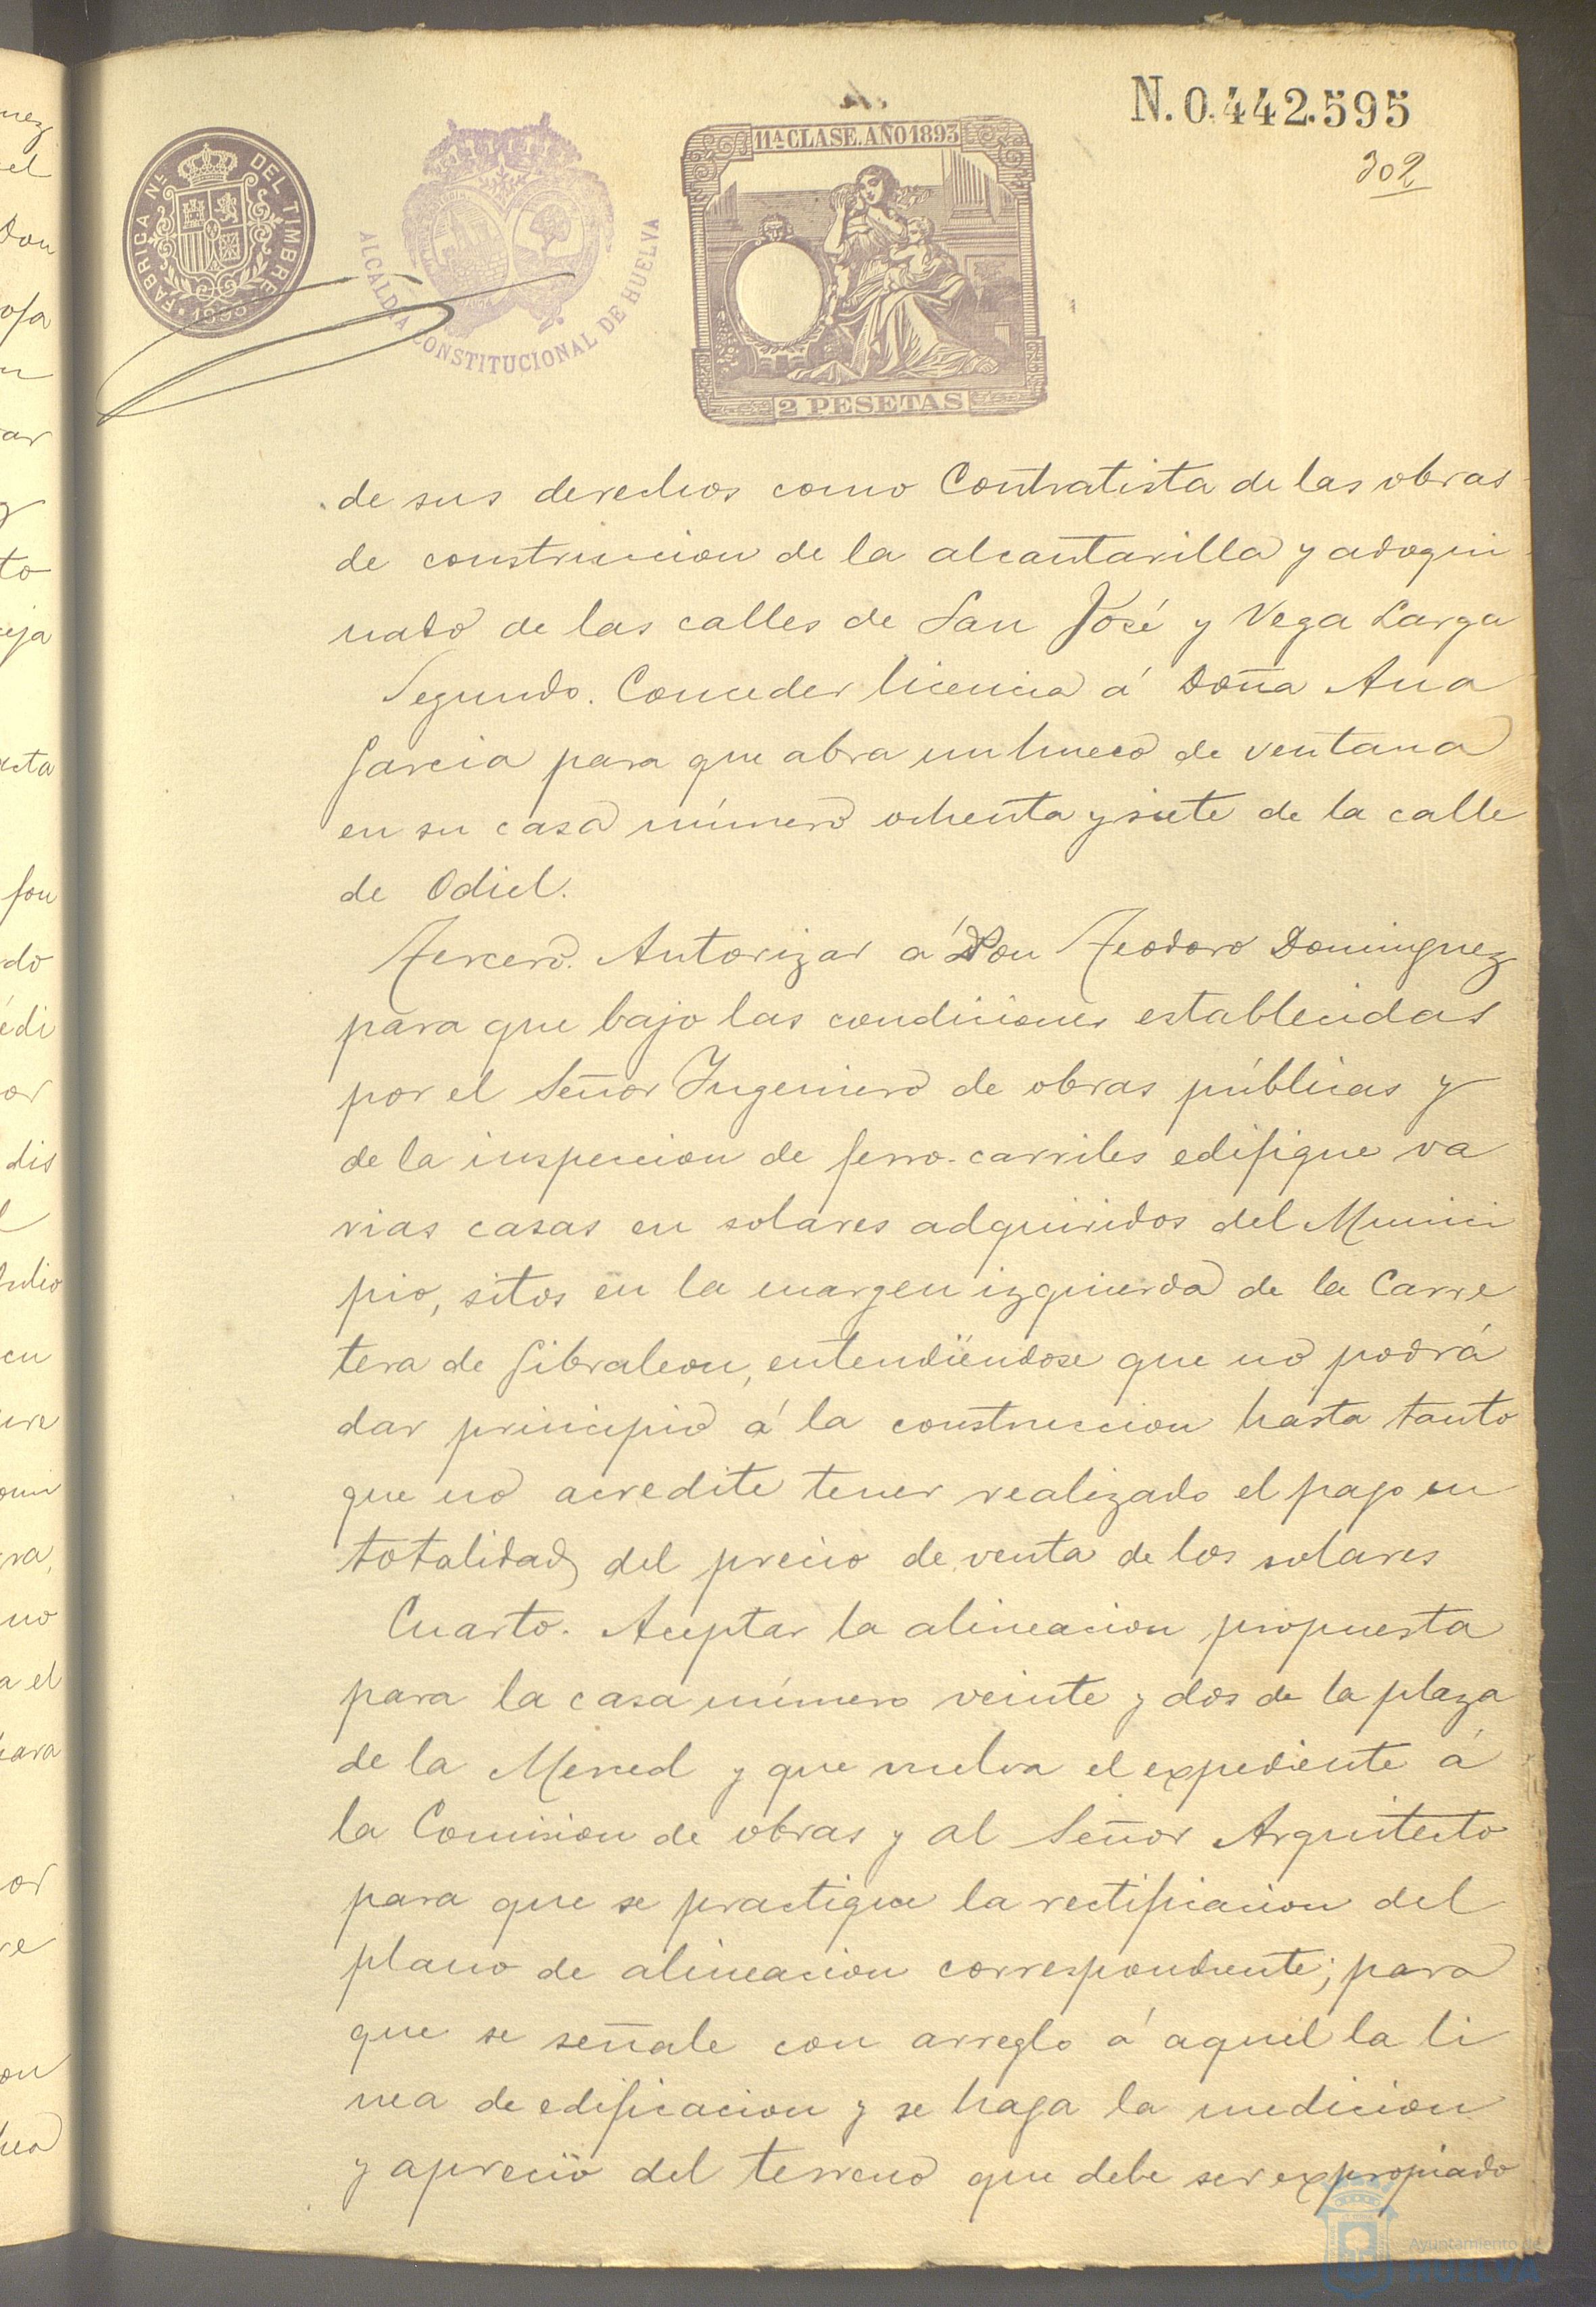 N.0.442.595
302
11ª CLASE.AÑO1893
FABRICA N.ᴸ DEL TIMBRE
1893
ALCALDIA CONSTITUCIONAL DE HUELVA
2 PESETAS
de sus derechos como Contratista de las obras
de construccion de la alcantarilla y adoqui
nado de las calles de San José y Vega Larga
Segundo. Conceder licencia á Doña Ana
Garcia para que abra un hueco de ventana
en su casa número ochenta y siete de la calle
de Odiel.
Tercero. Autorizar á Don Teodoro Dominguez
para que bajo las condiciones establecidas
por el Señor Ingeniero de obras públicas y
de la inspeccion de ferro-carriles edifique va
rias casas en solares adquiridos del Munici
pio, sitos en la margen izquierda de la Carre
tera de Gibraleon, entendiéndose que no podrá
dar principio á la construccion hasta tanto
que no acredite tener realizado el pago en
totalidad del precio de venta de los solares
Cuarto. Aceptar la alineacion propuesta
para la casa número veinte y dos de la plaza
de la Merced y que vuelva el expediente á
la Comision de obras y al Señor Arquitecto
para que se practique la rectificacion del
plano de alineacion correspondiente; para
que se señale con arreglo á aquel la li
nea de edificacion y se haga la medicion
y aprecio del terreno que debe ser expropiado
Ayuntamiento de
HUELVA